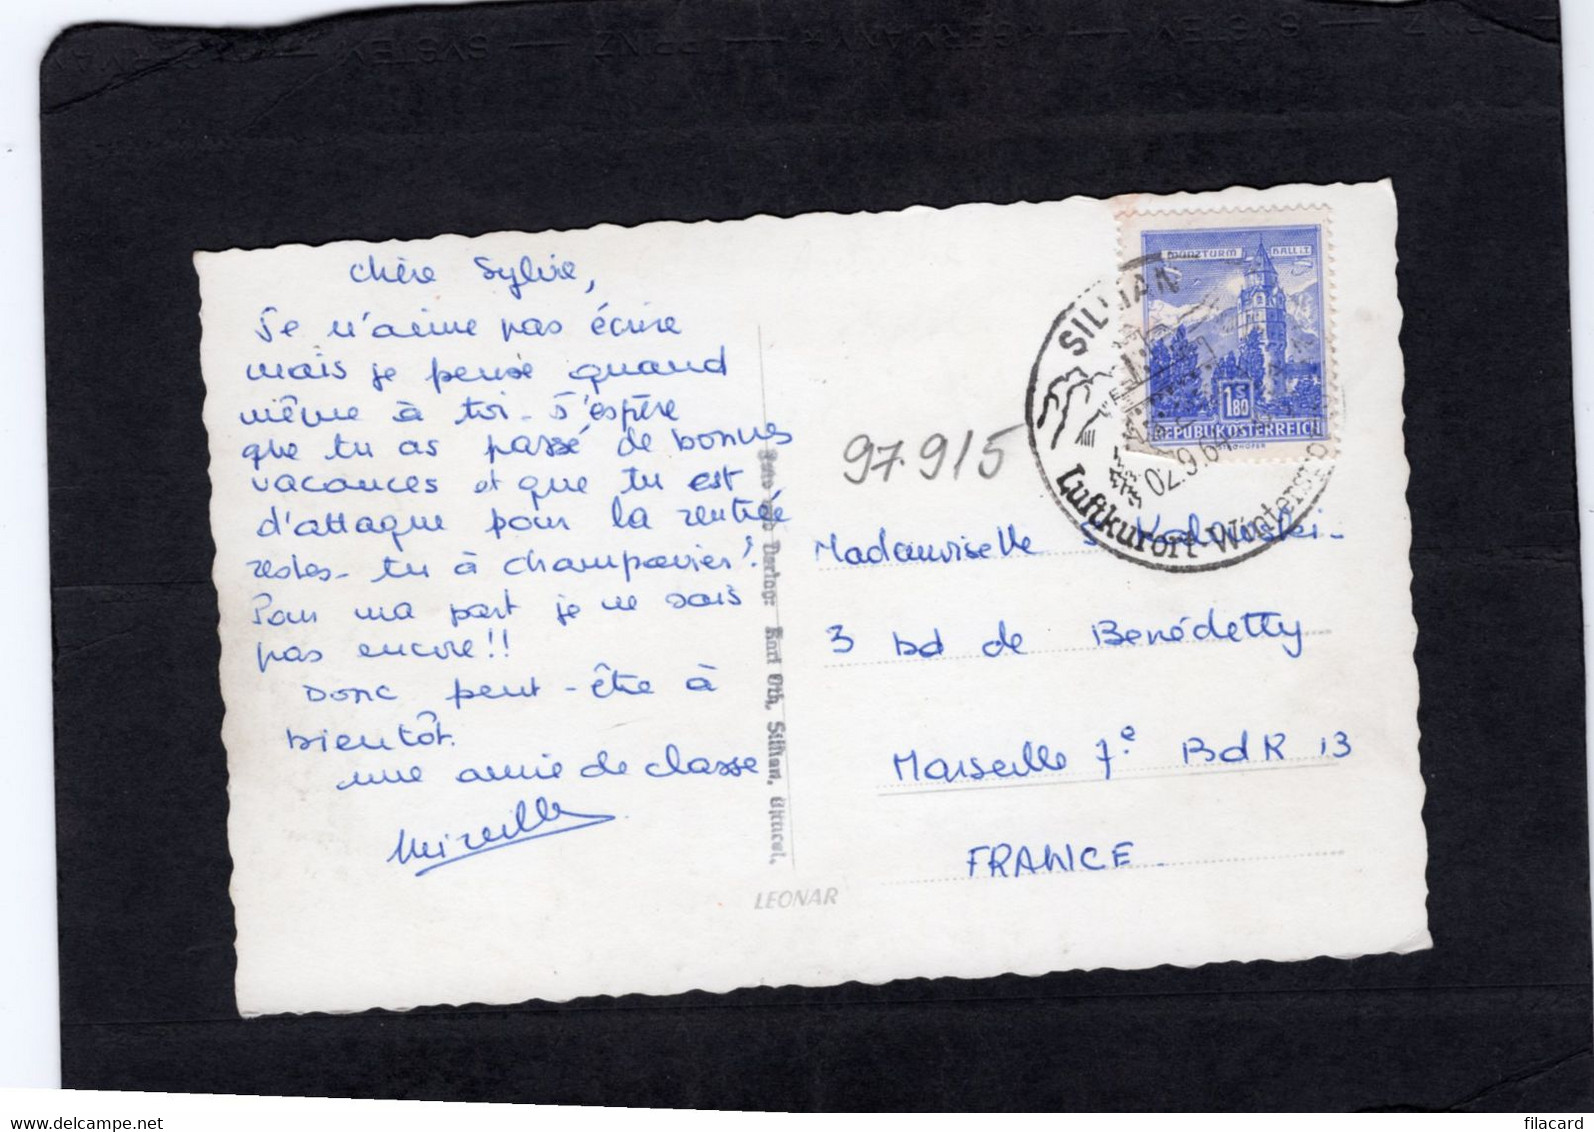 Chère Sylvie,
Je n'aime pas écrire
mais je pense quand
même à toi - J'espère
que tu as passé de bonnes
vacances et que tu est
d'attaque pour la rentrée
restes - tu à champavier?
Pour ma part je ne sais
pas encore!!
Donc peut - être à
bientôt.
une amie de classe
Mireille
Foto und Verlag: Karl Oth, Sillian, Osttirol.
LEONAR
97915
MÜNZTURM HALL i.T
S
1.80
REPUBLIK ÖSTERREICH
SILLIAN
02.9.64
Luftkurort-Wintersp
Mademoiselle S
3 Bd de Benédetty
Marseille 7e BdR 13
FRANCE -
SYSTEM — PRINZ — GERMANY
www.delcampe.net
filacard